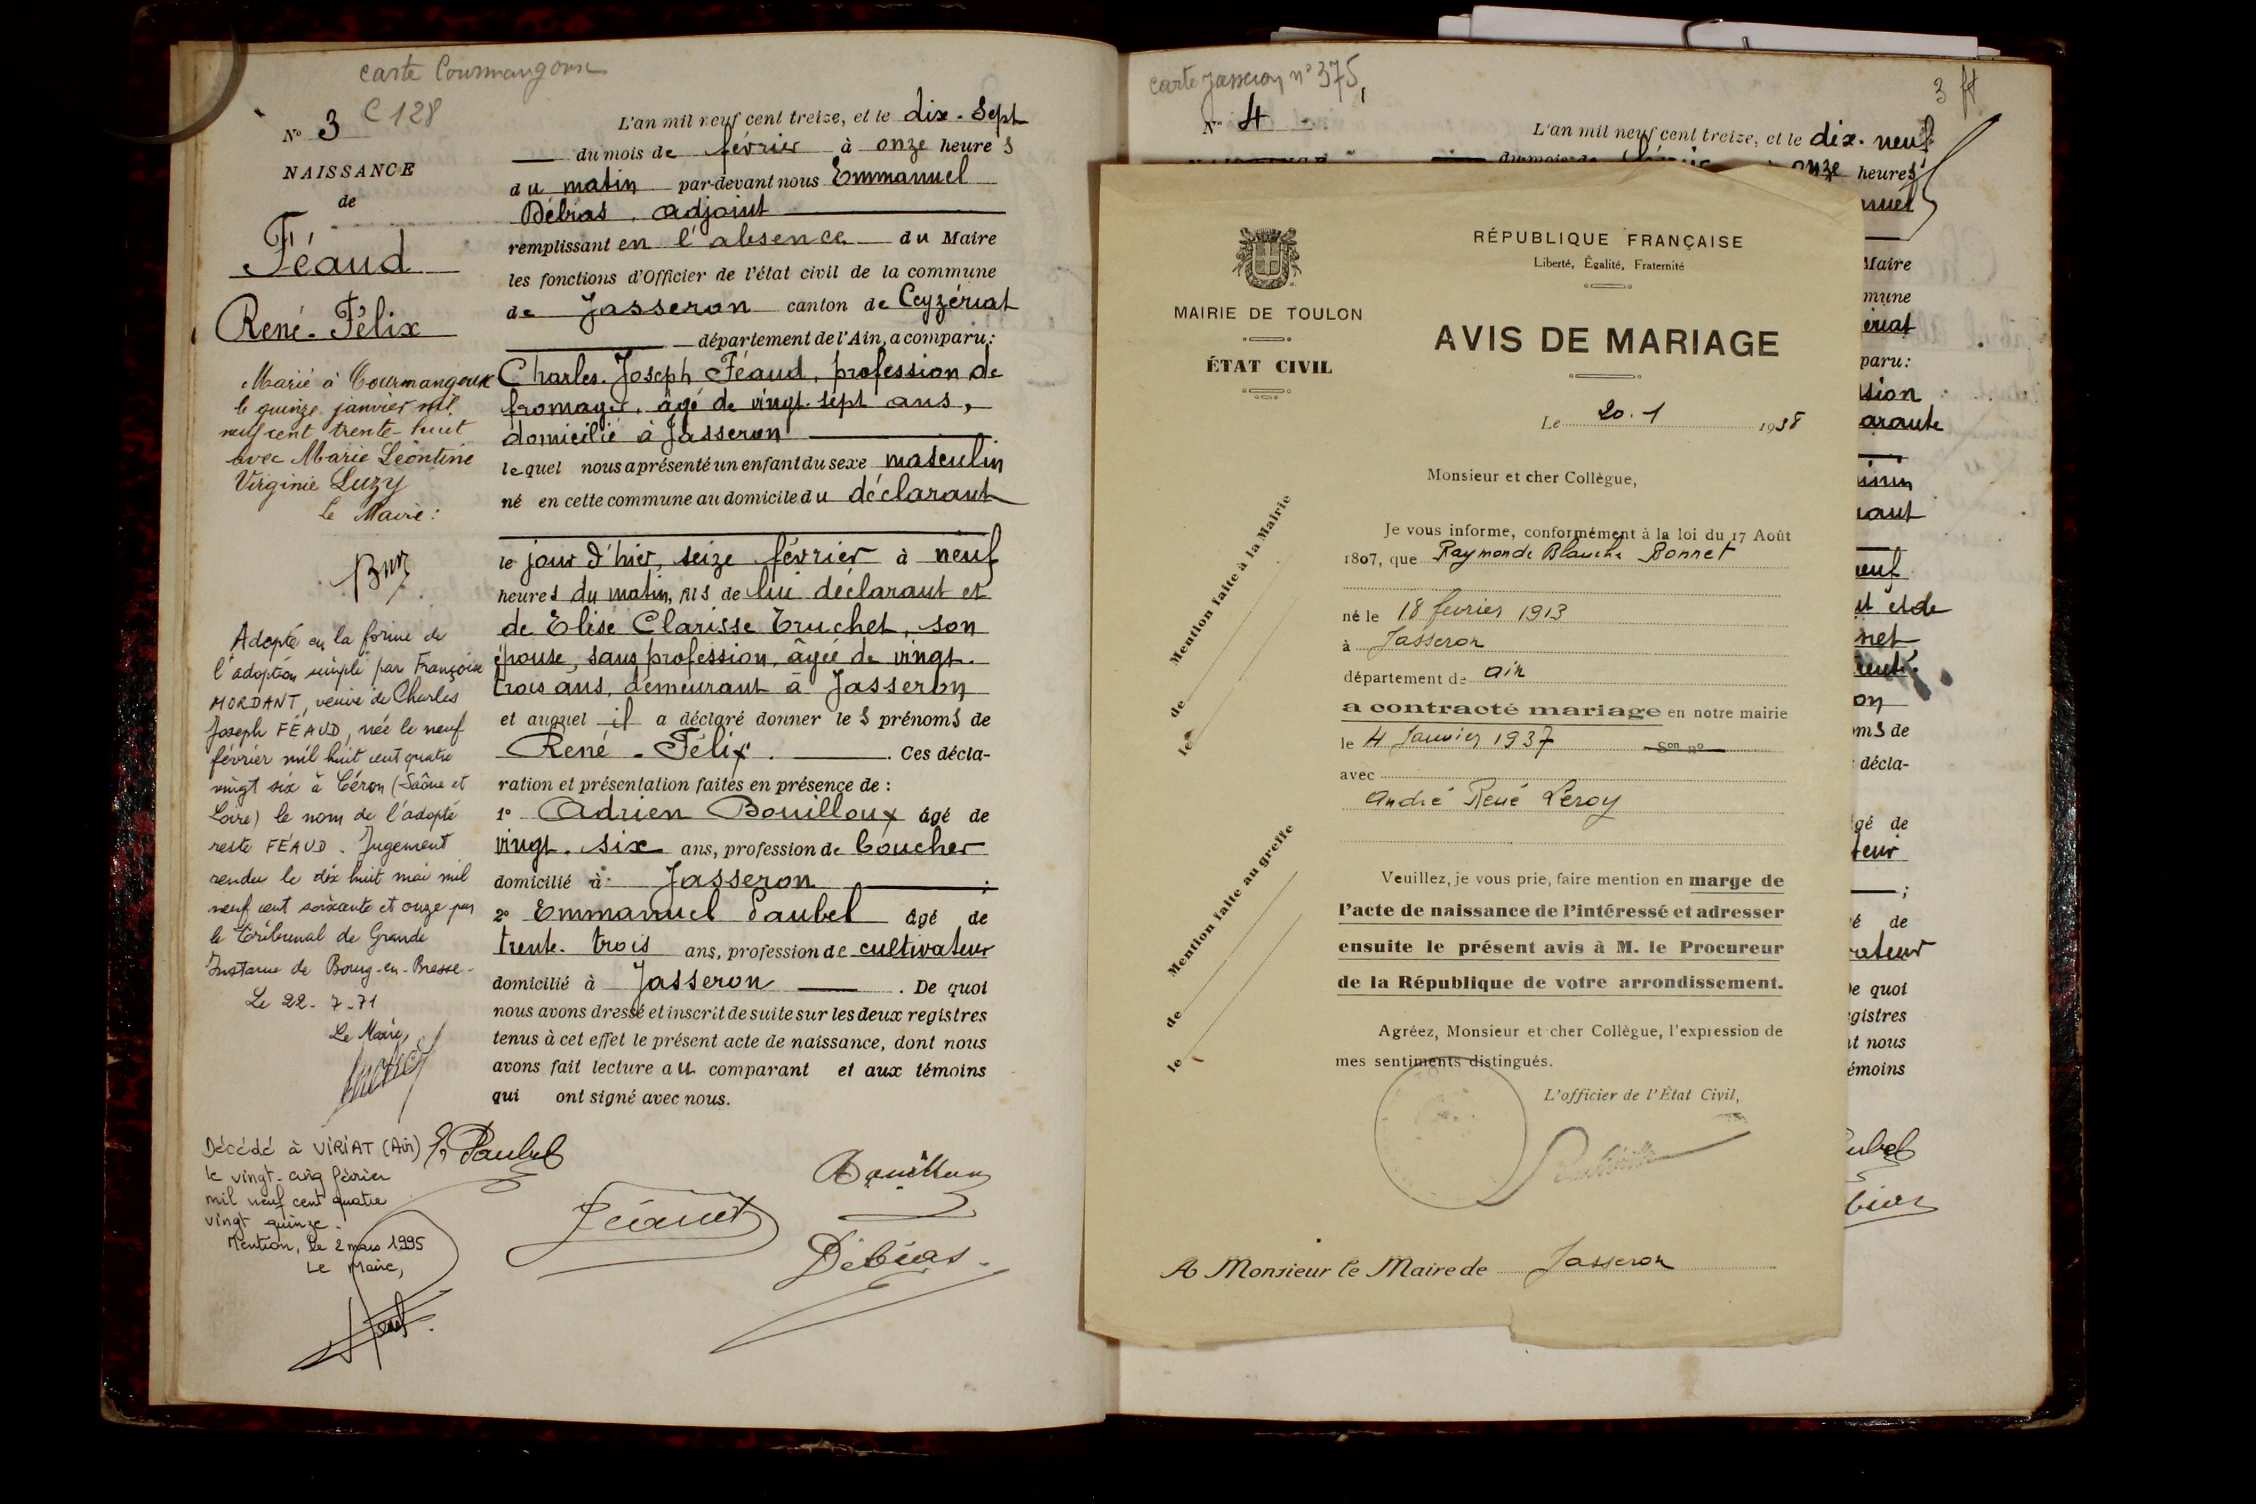 carte Courmangoux
C 128
N° 3
NAISSANCE
de
Féaud
René-Félix
Marié à Courmangoux
le quinze janvier mil
neuf cent trente-huit
avec Marie Léontine
Virginie Luzy
Le Maire:
Adopté en la forme de
l'adoption simple par Françoise
MORDANT, veuve de Charles
Joseph FÉAUD, née le neuf
février mil huit cent quatre
vingt six à Céron (Saône et
Loire) le nom de l'adopté
reste FÉAUD. Jugement
rendu le dix huit mai mil
neuf cent soixante et onze par
le Tribunal de Grande
Instance de Bourg-en-Bresse.
Le 22-7-71
Le Maire,
Décédé à VIRIAT (Ain)
le vingt-cinq février
mil neuf cent quatre
vingt quinze.
Mention, le 2 mars 1995
Le Maire,
L'an mil neuf cent treize, et le dix-sept
du mois de février à onze heures
du matin par-devant nous Emmanuel
Débias, adjoint
remplissant en l'absence du Maire
les fonctions d'Officier de l'état civil de la commune
de Jasseron canton de Ceyzériat
département de l'Ain, a comparu:
Charles-Joseph Féaud, profession de
fromager, âgé de vingt-sept ans,
domicilié à Jasseron
lequel nous a présenté un enfant du sexe masculin
né en cette commune au domicile du déclarant
le jour d'hier, seize février à neuf
heures du matin, fils de lui déclarant et
de Elise Clarisse Truchet, son
épouse, sans profession, âgée de vingt-
trois ans, demeurant à Jasseron
et auquel il a déclaré donner les prénoms de
René-Félix. Ces décla-
ration et présentation faites en présence de:
1° Adrien Bouilloux âgé de
vingt-six ans, profession de boucher
domicilié à Jasseron;
2° Emmanuel Paubel âgé de
trente-trois ans, profession de cultivateur
domicilié à Jasseron. De quoi
nous avons dressé et inscrit de suite sur les deux registres
tenus à cet effet le présent acte de naissance, dont nous
avons fait lecture au comparant et aux témoins
qui ont signé avec nous.
E. Paubel
Bouilloux
Féaud
Débias
carte Jasseron n° 375
3 ft
N° 4
L'an mil neuf cent treize, et le dix-neuf
onze heures
Maire
mune
ériat
paru:
sion
arante
neuf
oms de
décla-
âgé de
teur
é de
vateur
De quoi
egistres
nt nous
témoins
aubel
RÉPUBLIQUE FRANÇAISE
Liberté, Égalité, Fraternité
MAIRIE DE TOULON
ÉTAT CIVIL
AVIS DE MARIAGE
Le 20-1 1938
Monsieur et cher Collègue,
Je vous informe, conformément à la loi du 17 Août
1807, que Raymonde Blanche Bonnet
né le 18 février 1913
à Jasseron
département de Ain
a contracté mariage en notre mairie
le 4 Janvier 1937 Son N°
avec
André René Leroy
Veuillez, je vous prie, faire mention en marge de
l'acte de naissance de l'intéressé et adresser
ensuite le présent avis à M. le Procureur
de la République de votre arrondissement.
Agréez, Monsieur et cher Collègue, l'expression de
mes sentiments distingués.
L'officier de l'État Civil,
A Monsieur le Maire de Jasseron
Mention faite à la Mairie
de
le
Mention faite au greffe
de
le